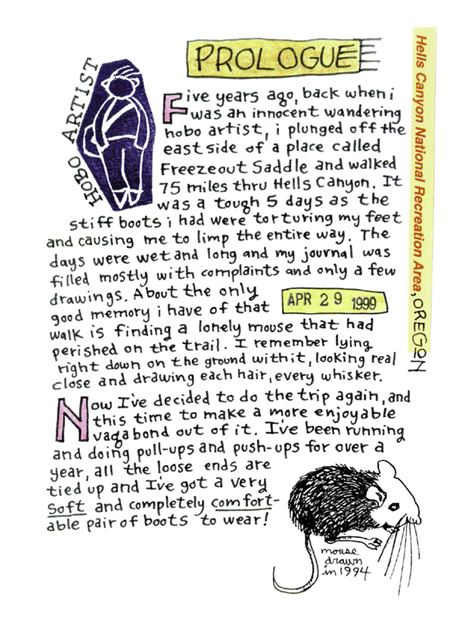 PROLOGUE
HOBO ARTIST
Hells Canyon National Recreation Area, OREGON
Five years ago, back when i
was an innocent wandering
hobo artist, i plunged off the
east side of a place called
Freezeout Saddle and walked
75 miles thru Hells Canyon. It
was a tough 5 days as the
stiff boots i had were torturing my feet
and causing me to limp the entire way. The
days were wet and long and my journal was
filled mostly with complaints and only a few
drawings. About the only
good memory i have of that
APR 29 1999
walk is finding a lonely mouse that had
perished on the trail. I remember lying
right down on the ground with it, looking real
close and drawing each hair, every whisker.
Now I've decided to do the trip again, and
this time to make a more enjoyable
vagabond out of it. I've been running
and doing pull-ups and push-ups for over a
year, all the loose ends are
tied up and I've got a very
soft and completely comfort-
able pair of boots to wear!
mouse
drawn
in 1994